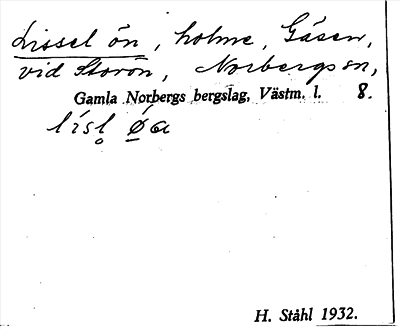 Lissel ön, holme, Gäsen,
vid Storön, Norbergs sn,
Gamla Norbergs bergslag, Västm. l. 8.
lísl̥ ǿa
H. Ståhl 1932.